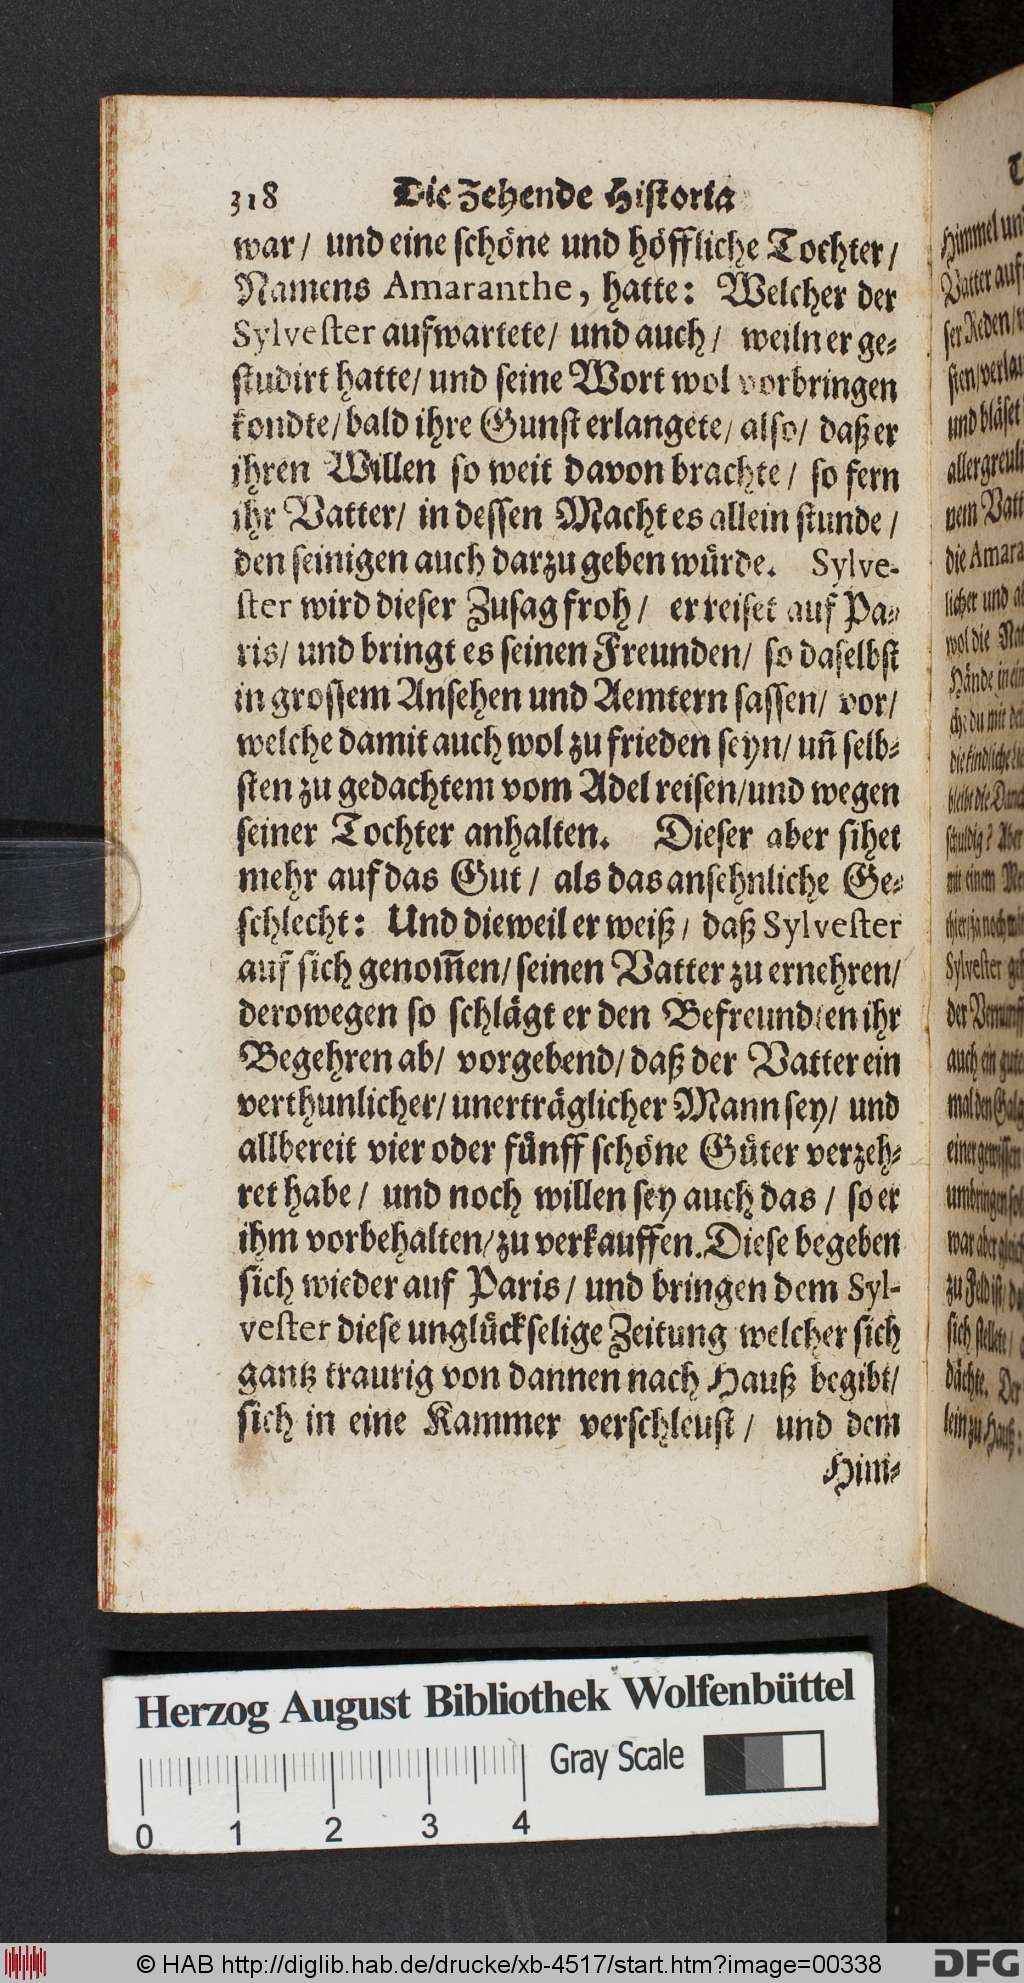 318 Die Zehende Historia
war / und eine schöne und höffliche Tochter /
Namens Amaranthe, hatte: Welcher der
Sylvester aufwartete / und auch / weiln er ge-
studirt hatte / und seine Wort wol vorbringen
kondte / bald ihre Gunst erlangete / also / daß er
ihren Willen so weit davon brachte / so fern
ihr Vatter / in dessen Macht es allein stunde /
den seinigen auch darzu geben würde. Sylve-
ster wird dieser Zusag froh / er reiset auf Pa-
ris / und bringt es seinen Freunden / so daselbst
in grossem Ansehen und Aemtern sassen / vor /
welche damit auch wol zu frieden seyn / uñ selb-
sten zu gedachtem vom Adel reisen / und wegen
seiner Tochter anhalten. Dieser aber sihet
mehr auf das Gut / als das ansehnliche Ge-
schlecht: Und dieweil er weiß / daß Sylvester
auf sich genom̃en / seinen Vatter zu ernehren /
derowegen so schlägt er den Befreundten ihr
Begehren ab / vorgebend / daß der Vatter ein
verthunlicher / unerträglicher Mann sey / und
allbereit vier oder fünff schöne Güter verzeh-
ret habe / und noch willen sey auch das / so er
ihm vorbehalten / zu verkauffen. Diese begeben
sich wieder auf Paris / und bringen dem Syl-
vester diese unglückselige Zeitung welcher sich
gantz traurig von dannen nach Hauß begibt /
sich in eine Kammer verschleust / und dem
Him-
Himmel un
Vatter auf
ser Reden /
sten / verla
und bläset
allergreuli
nem Vatt
die Amara
licher und a
wol die Na
Hände in ein
che du mit de
die kindliche
bleibt die
schuldig? Aber
mit einem Me
Sylvester ge
der Vernunff
auch ein gute
mal den Galg
einer gewissen
umbringen sol
war aber gleich
zu Feld ist /
sich stellete /
dächte. Der
lein zu Hauß:
Herzog August Bibliothek Wolfenbüttel
Gray Scale
0 1 2 3 4
© HAB http://diglib.hab.de/drucke/xb-4517/start.htm?image=00338
DFG